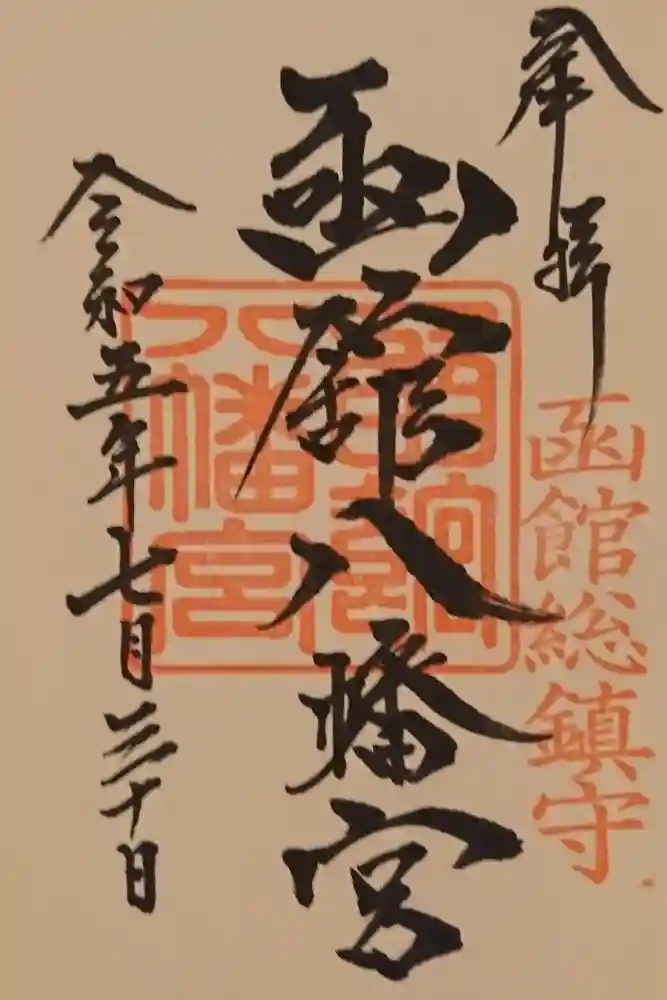 奉拝
函館総鎮守
函館八幡宮
函館八幡宮
令和五年七月三十日